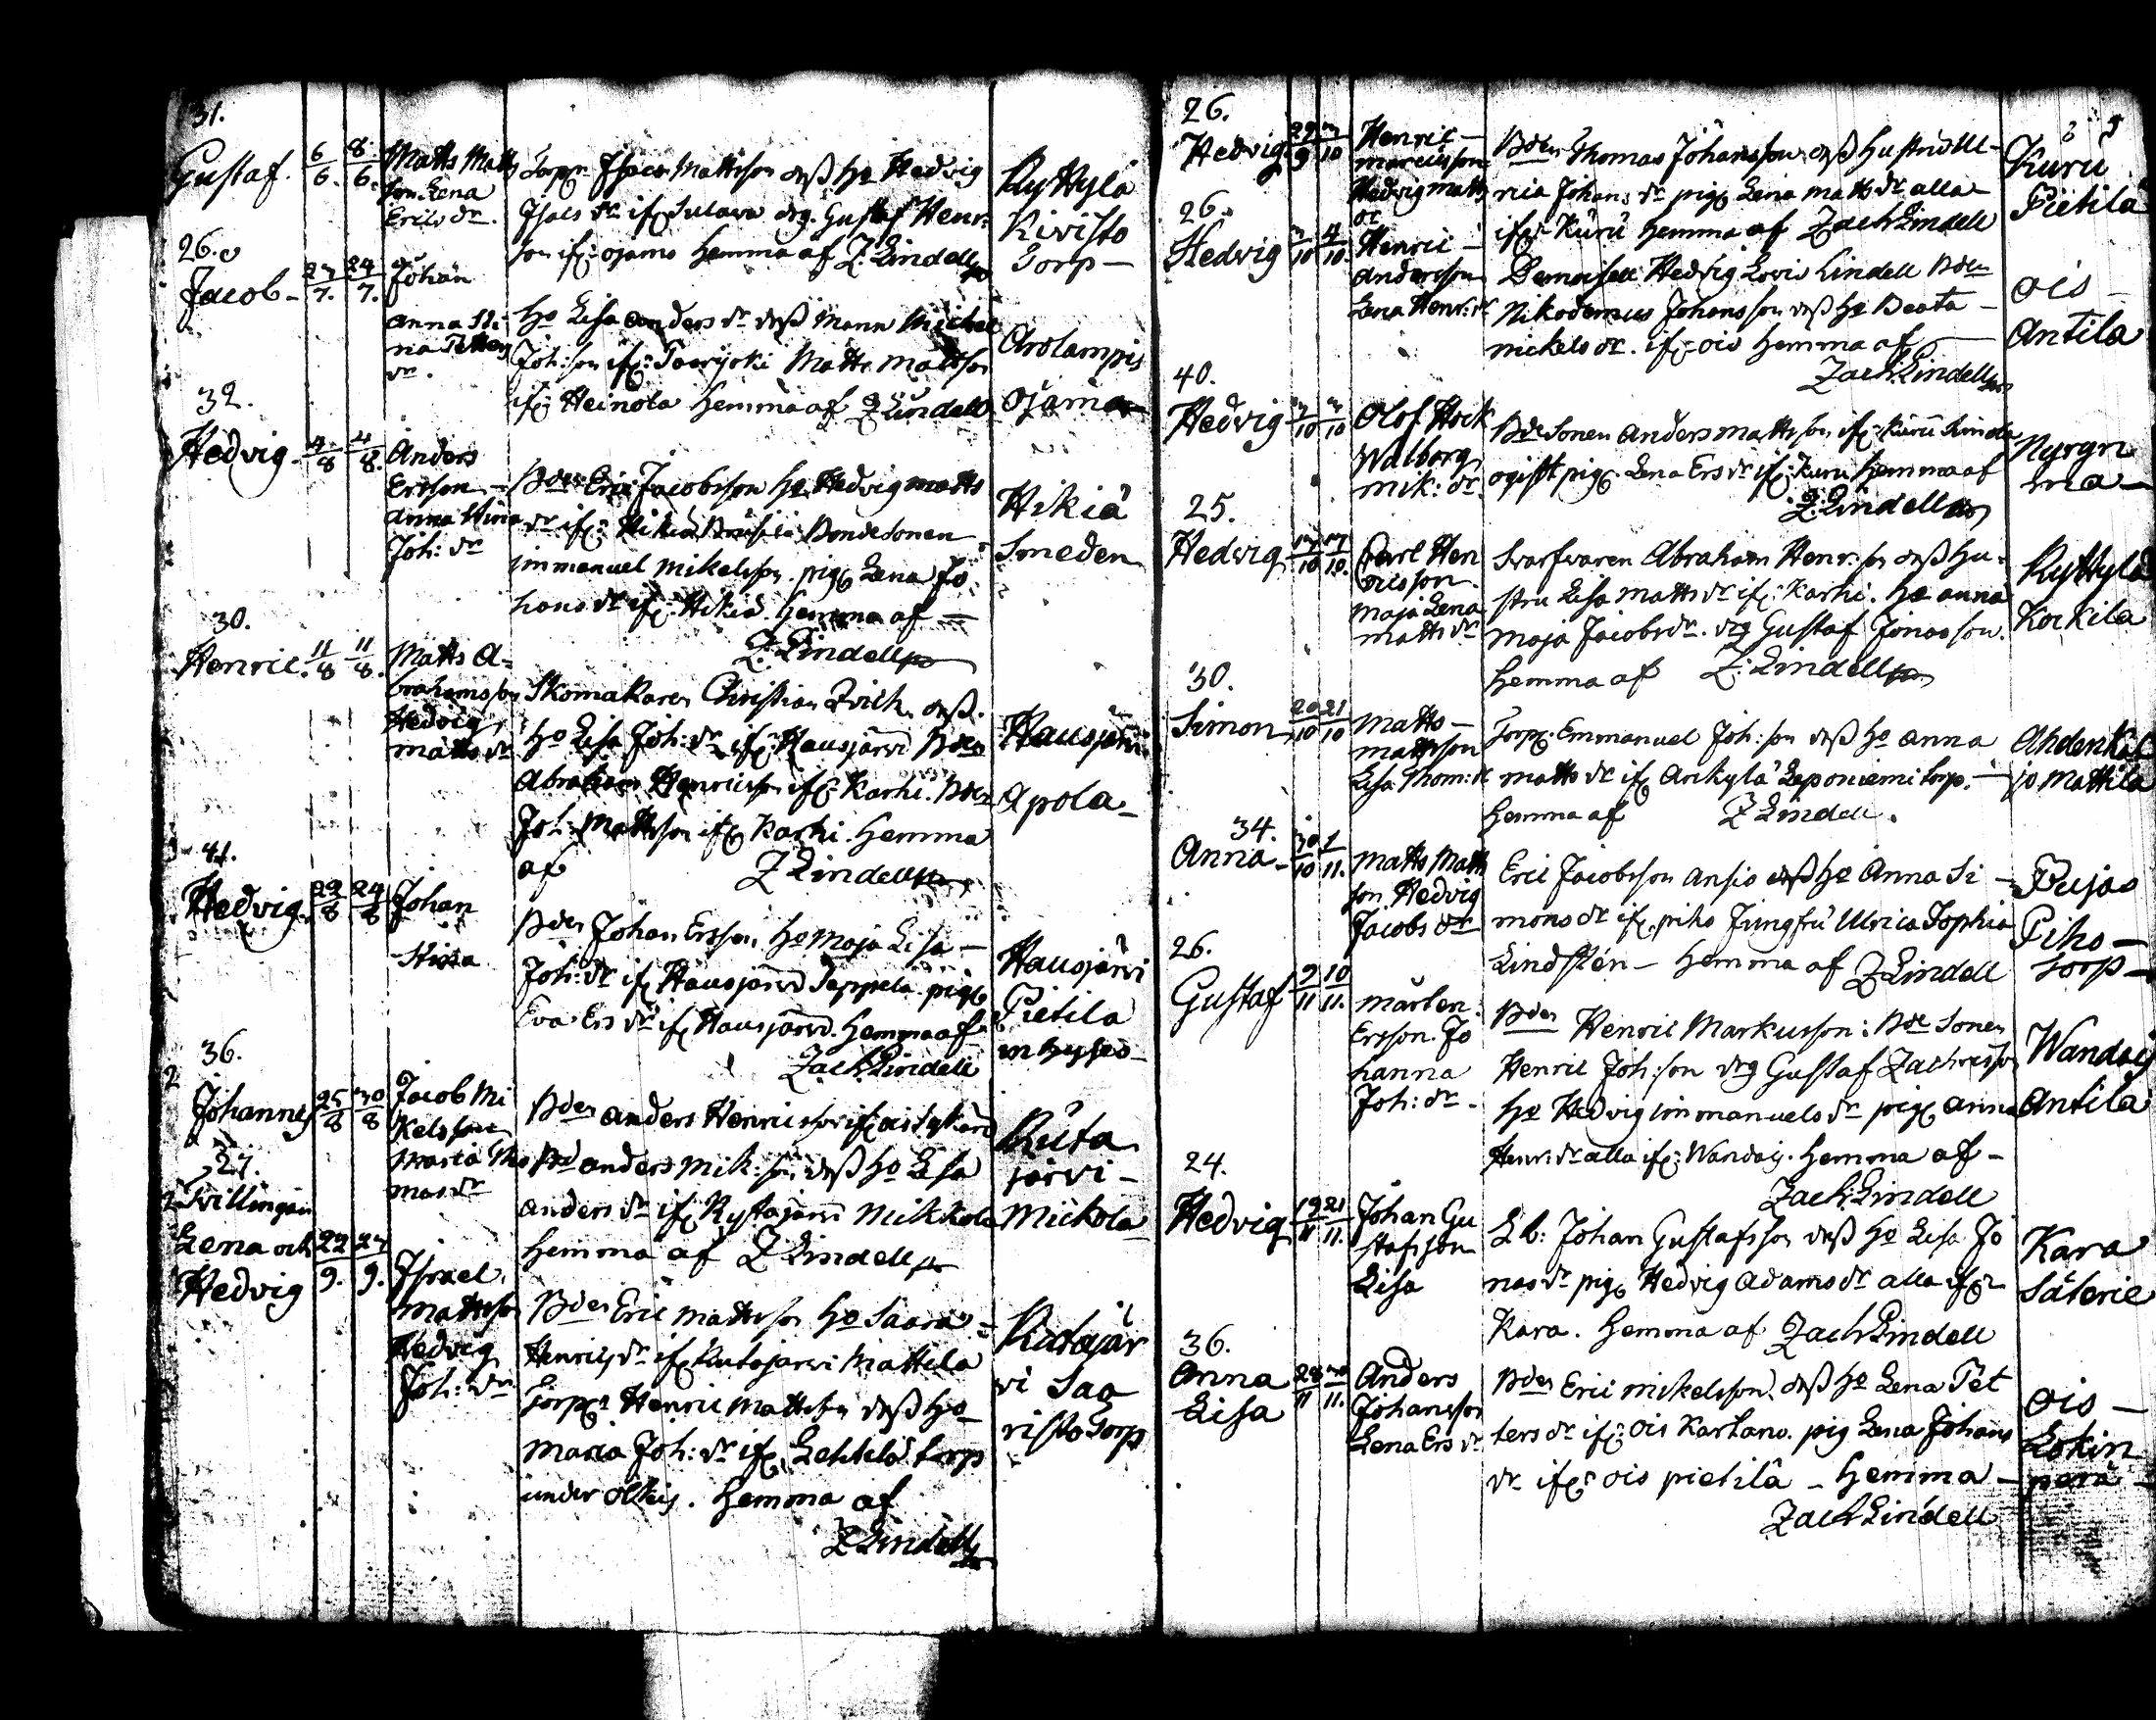 31.
Gustaf. 6/6. 8/6. Matts Matts
son. Lena
Erics dr.
Torp. Isaac Mattsson dess ho Hedvig
Isaks dr if: Sulawa drg. Gustaf Henr:
son if: ojams Hemma af Z. Lindell
Ryttylä
Kivisto
Torp
26.
Jacob 27/7. 29/7. Johan
anna Sti
na Petters
dr.
Ho Lisa anders dr dess Mann Michel
Joh: son if: Matts mattson
if: Heinola Hemma af Z Lindell
Arolampis
ojama
32.
Hedvig 4/8 4/8. Anders
Ersson
anna Stina
Joh: dr
Bden Eric Jacobsson ho Hedvig matts
dr if: Hikiä Bondesonen
immanuel mikelsson. pig Lena Jo
hans dr if: Hikiä. hemma af
Z: Lindell
Hikiä
Smeden
30.
Henric. 11/8 11/8. Matts A=
brahamsson
Hedvig
matts dr
Skomakaren Christian dess.
ho Lisa Joh: dr if: Hausjärvi Bden
Abraham Henricsson if: Karhi. Bden
Joh: Mattsson if: Karhi. Hemma
af Z Lindell
Hausjärvi
Apola
41.
Hedvig. 22/8 24/8 Johan
Stina
Bden Johan Ersson, Ho Maja Lisa
Joh: dr if Hausjärvi Seppela pig
Eva Ers dr if Hausjärvi. Hemma af
Zach. Lindell
Hausjärvi
Pietila
inhyses
36.
Johannes 25/8 30/8 Jacob Mi
kelsson
Maria Tho
mas dr
Bden anders Henricsson if
Bd anders mik: son dess ho Lisa
anders dr if Rytajärvi Mikkola
Hemma af Z Lindell
Ruta
järvi
Mickola
27.
Tvillingar
Lena och
Hedvig 22/9. 27/9. Israel
mattsson
Hedvig
Joh: dr
Bden Eric mattsson Ho Saara
Henrics dr if Rutajärvi Mattila
Torp. Henric Mattsson dess ho
Maria Joh: dr if Lehtelä torp
under Hemma af
Z Lindell
Rutajär
vi Saa
risto Torp
26.
Hedvig 29/9 3/10 Henric
marcusson
Hedvig matts
dr
Bden Thomas Johansson dess hustru Ul
rica Johans dr pig Lena matts dr alla
if: Kuru hemma af Zach Lindell
Kuru
Pietilä
26.
Hedvig 3/10 4/10. Henric
Andersson
Lena Henr: dr
Demoisell Hedvig Lovis Lindell Bden
Nikodemus Johansson dess ho Beata
mickels dr. if: ois hemma af
Zach. Lindell
ois
Antila
40.
Hedvig Olof Hok
Walborg
mik: dr
Bdesonen Anders mattsson if: Kuru
ogift pig. Lena Ers dr if: Kuru hemma af
Z. Lindell
25.
Hedvig 17/10 17/10. Carl Hen
ricsson.
Maja Lena
matts dr
Svarfvaren Abraham Henr: son dess hu
stru Lisa matts dr if: Karhi. ho anna
Maja Jacobs dr. drg Gustaf Jonasson.
hemma af Z: Lindell
Ryttylä
Kockila
30.
Simon 20/10 21/10 Matts
mattsson
Lisa Thom: dr
Torp. Emmanuel Joh: son dess ho anna
matts dr if Leponiemi torp.
hemma af Z Lindell.
jo Mattila
34.
Anna 30/10 1/11. Matts Matts
son Hedvig
Jacobs dr
Eric Jacobsson dess ho Anna Si
mons dr if piho Jungfru Ulrica Sophia
Lindstén hemma af Z Lindell
Pujas
Piho
torp
26.
Gustaf 9/11 10/11. Mårten
Ersson. Jo
hanna
Joh: dr.
Bden Henric Markusson: Bde sonen
Henric Joh: son drg Gustaf Zachrisson
ho Hedvig immanuels dr pig anna
Henr: dr alla if: Wandaij. hemma af
Zach: Lindell
Wandaij
Antila
24.
Hedvig 19/11 21/11. Johan Gu
stafsson
Lisa
Johan Gustafsson dess ho Lisa Jo
nas dr pig Hedvig Adams dr alla if
Kara. hemma af Zach Lindell
Kara
Säterie
36.
Anna
Lisa 28/11 30/11. Anders
Johansson
Lena Ers dr
Bden Eric mickelsson dess ho Lena Pet
ters dr if: ois Kartano. pig Lena Johans
dr if: ois pietilä hemma
Zach Lindell
ois
perä